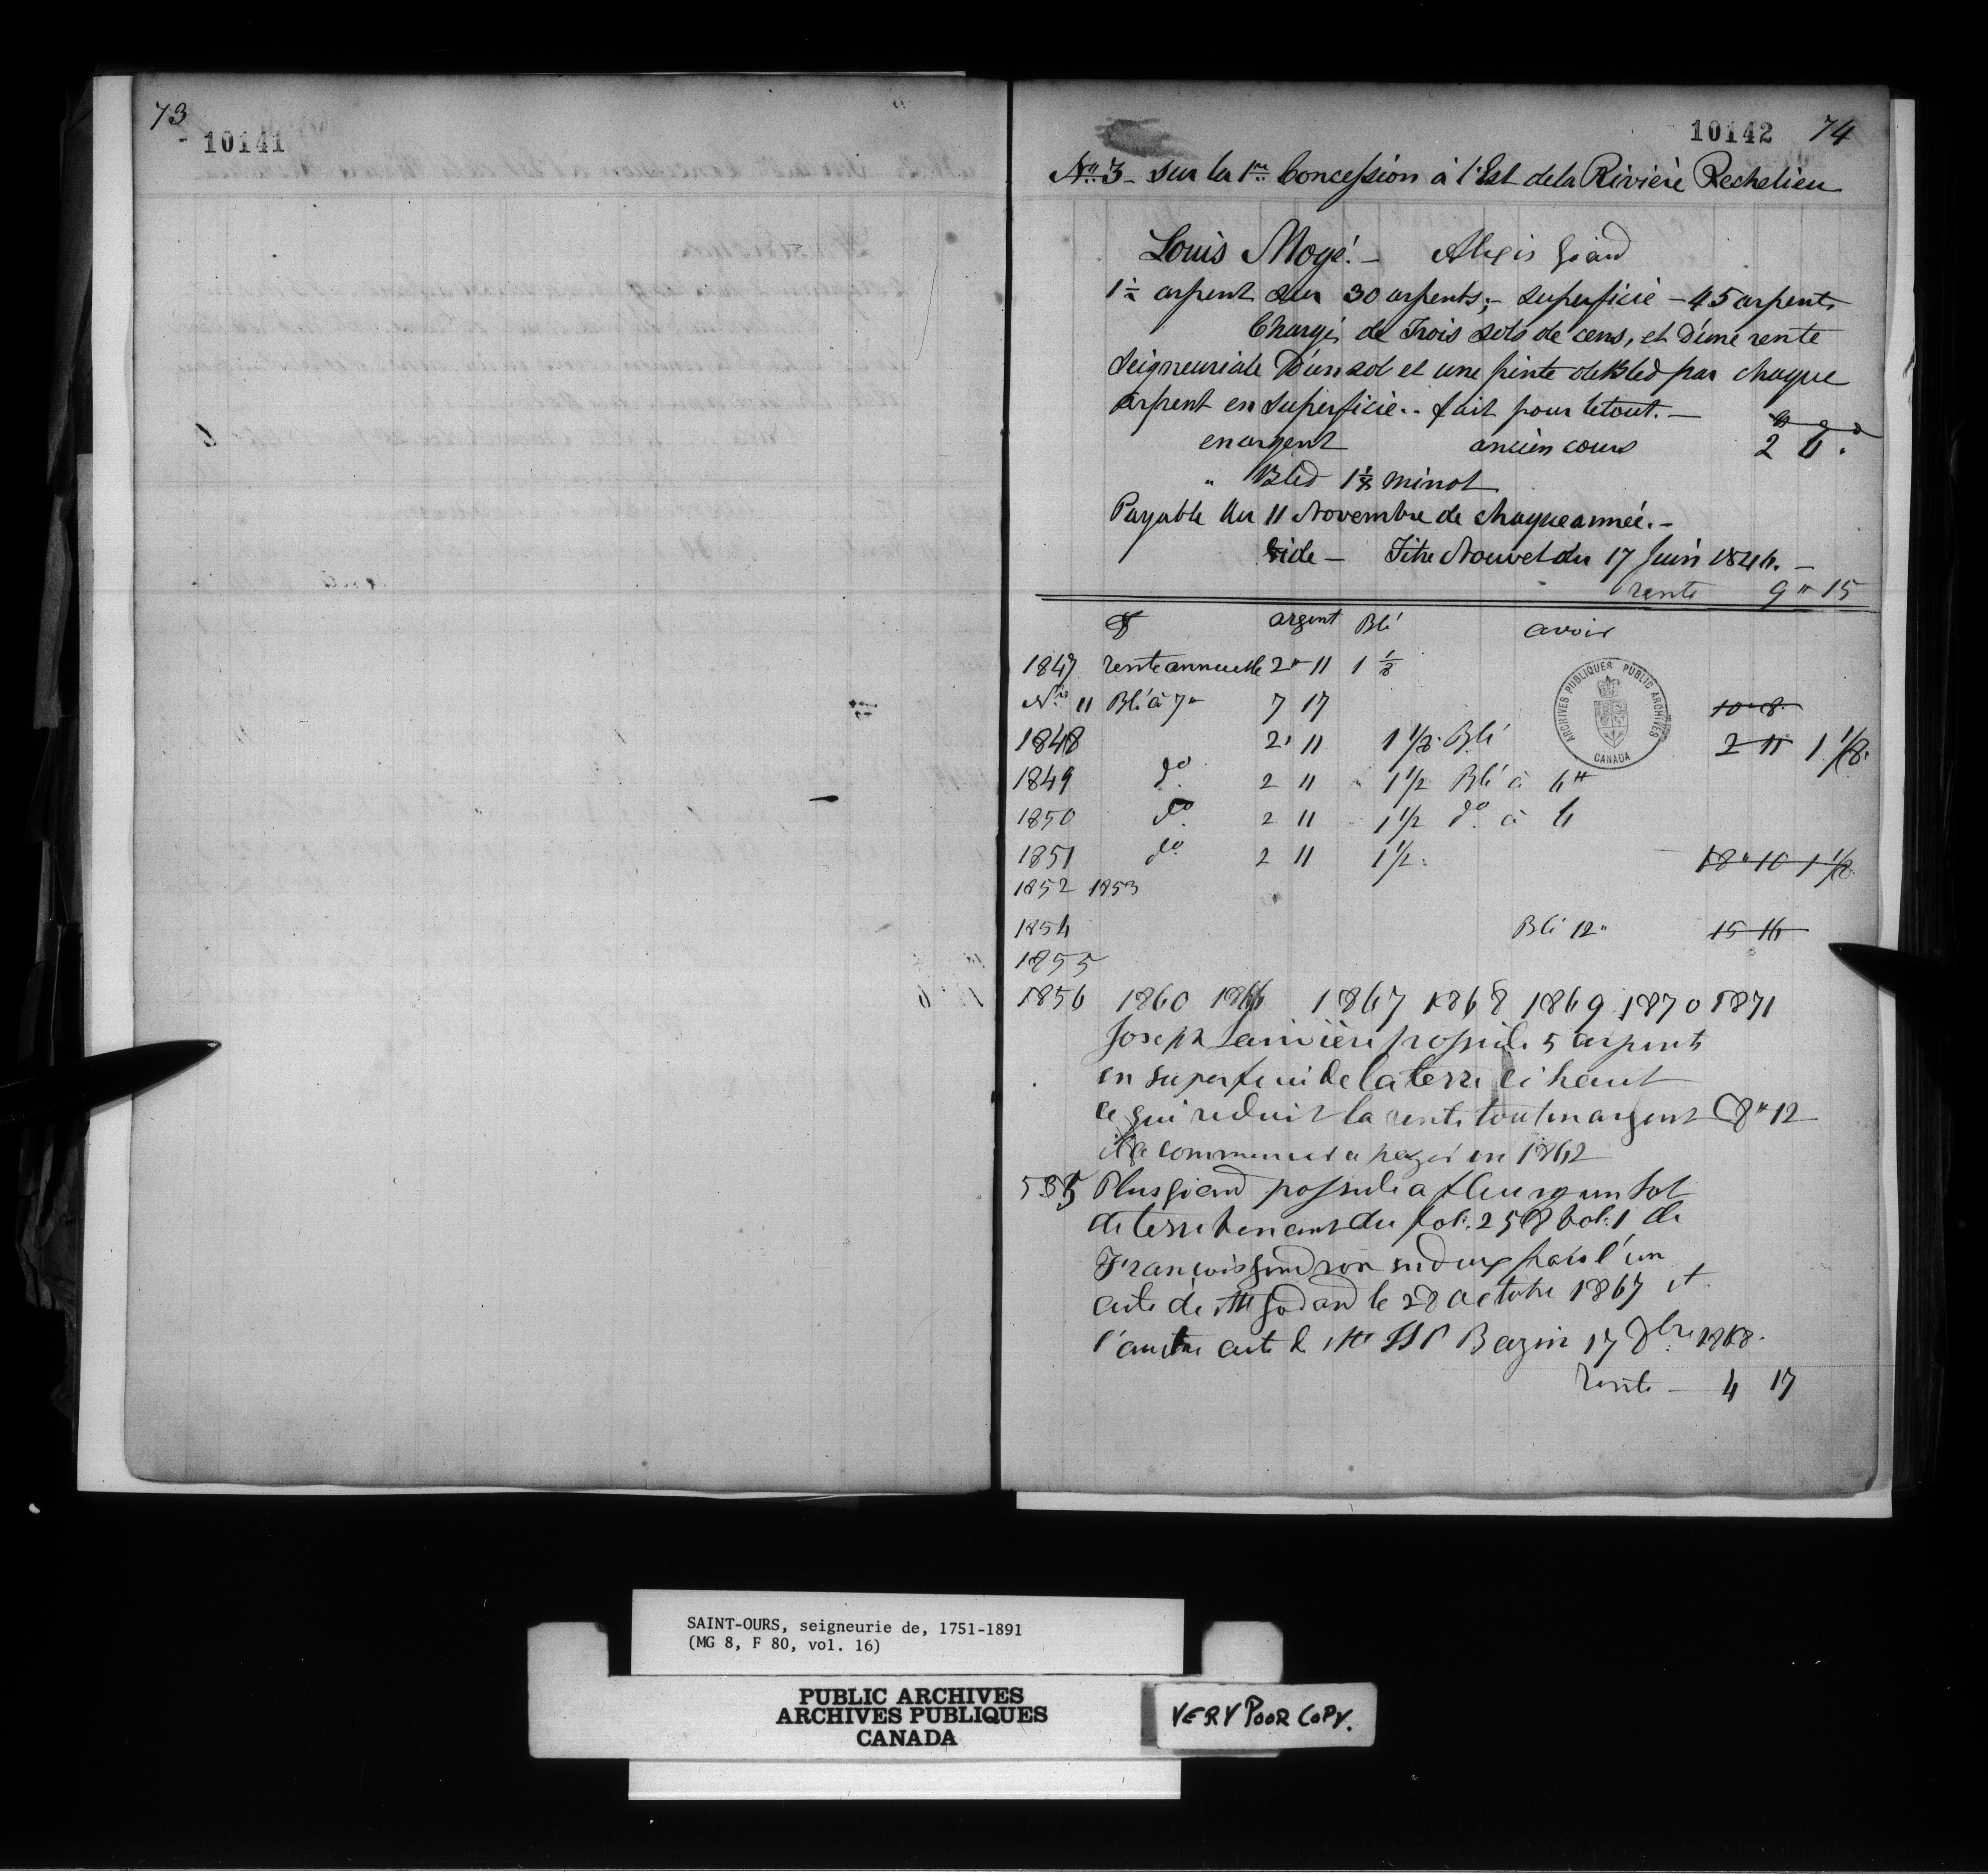 73
10141
10142 74
No. 3 - Sur la 1re Concession à l'Est de la Rivière Rechelieu
Louis Mogé. - Alexis Giard
1 1/2 arpent sur 30 arpents; - superficie - 45 arpents
Chargé de Trois sols de cens, et d'une rente
Seigneuriale D'un sol et une pinte de Bled par chaque
arpent en superficie.. fait pour le tout. -
en argent ancien cours 2
" Bled 1 1/8 minot
Payable Au 11 Novembre de chaque année. -
Vide - Titre Nouvel du 17 Juin 1844. -
rente 9 " 15
argent Blé avoir
1847 rente annuelle 2 " 11 1 1/8
11 Blé à 7 " 7 17 10 " 8
1848 2 " 11 1 1/8 Blé 2 11 1 1/8
1849 do. 2 11 " 1 1/2 Blé à 6 #
1850 do. 2 11 1 1/2 do. à 6
1851 do. 2 11 1 1/2. 18 " 10 1 1/8
1852 1853
1854 Blé 12 " 15 16
1855
1856 1860 1866 1867 1868 1869 1870 1871
Joseph Larivière possède 5 arpents
en superficie de la terre ci haut
ce qui reduit la rente tout en argent à 8 " 12
il a commencé a payer en 1862
535 Plus Giard possède a un lot
de terre venant du fol. 258 vol. 1 de
François Gendron en deux parts l'un
acte de Mtre Godard le 28 octobre 1867 et
l'autre acte de Mtre Bazin 17 1868.
Rente - 4 17
ARCHIVES PUBLIQUES PUBLIC ARCHIVES
CANADA
SAINT-OURS, seigneurie de, 1751-1891
(MG 8, F 80, vol. 16)
PUBLIC ARCHIVES
ARCHIVES PUBLIQUES
CANADA
VERY POOR COPY.